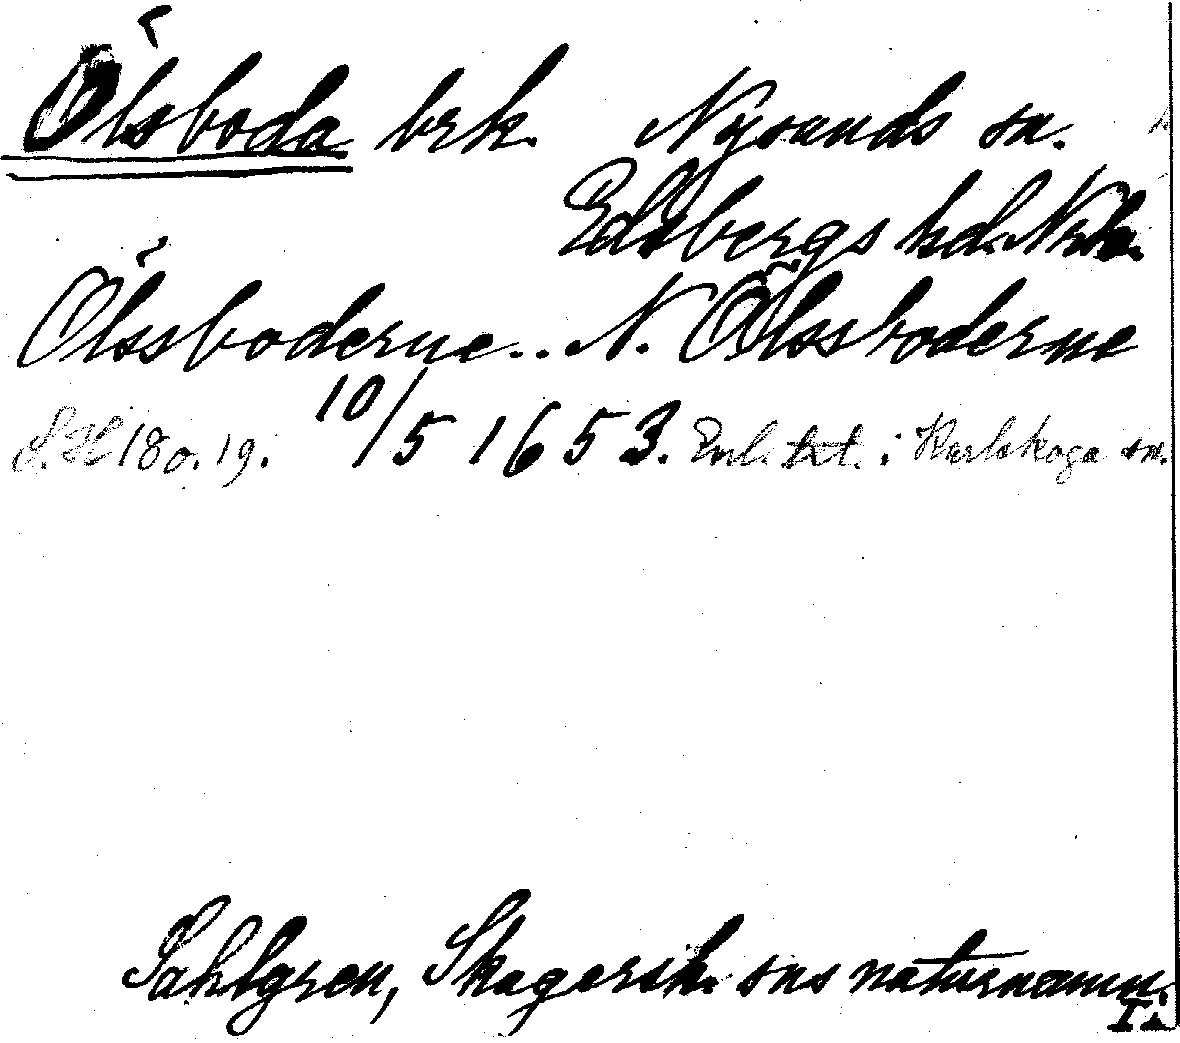 Ölsboda brk. Nysunds sn.
Edsbergs hd. Nrke.
Ölssboderne... N. Ölssboderne
10/5 1653. Enl. trl. i Karlskoga sn.
S.H 180.19.
Sahlgren, Skagersh. sns naturnamn.
I.